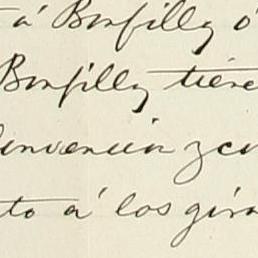 á Bonfilly ó
Bonfilly tiene
invención y cu
to á los gira